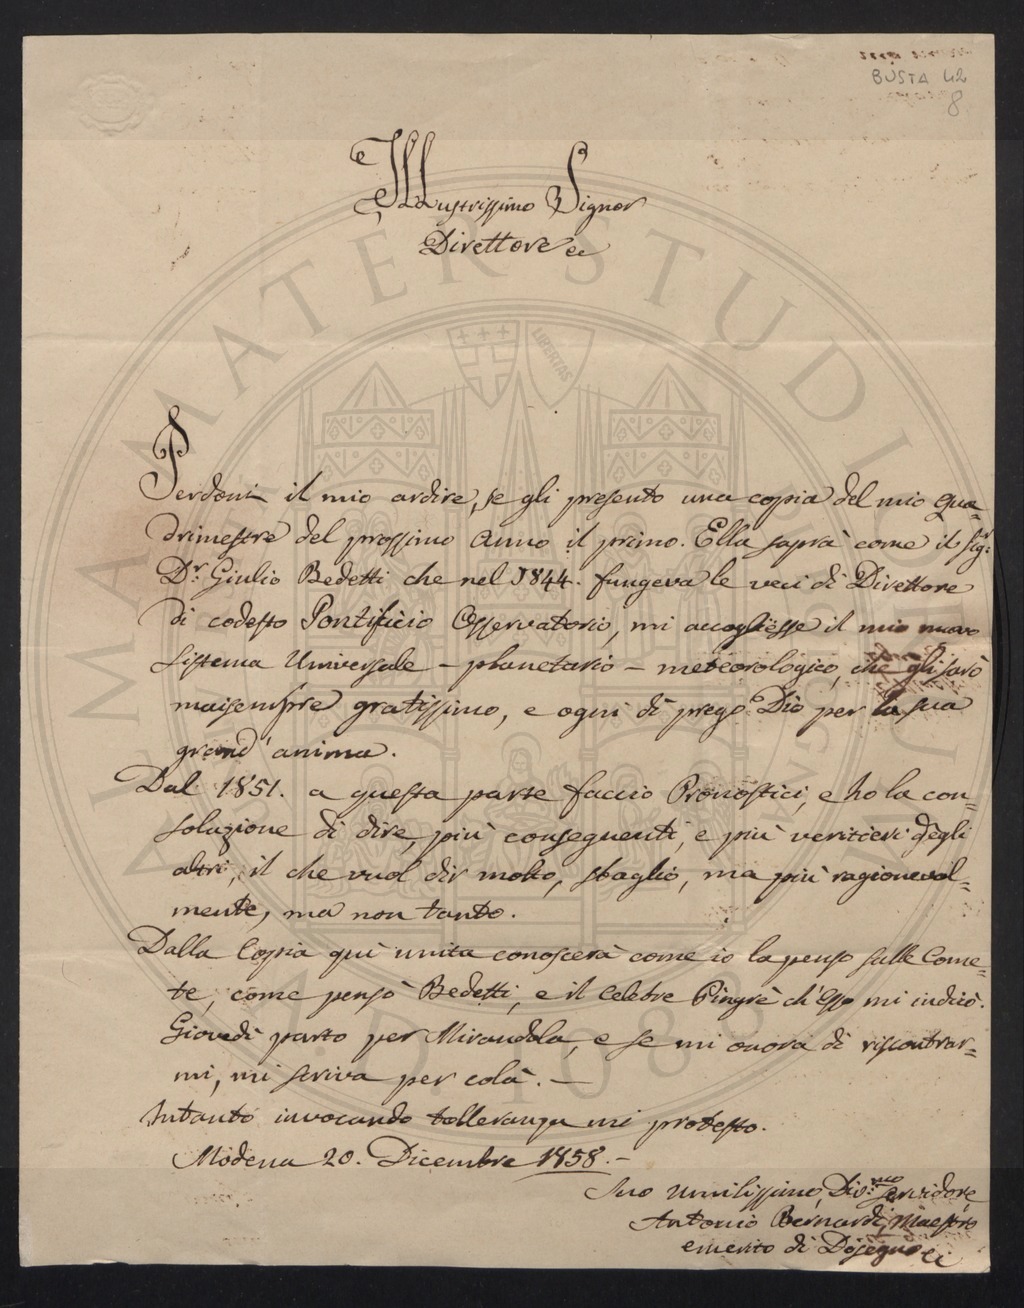 BUSTA 42
8
Illustrissimo Signor
Direttore ec
Perdoni il mio ardire, se gli presento una copia del mio Qua=
drimestre del prossimo Anno il primo. Ella saprà come il Sigr
Dr. Giulio Bedetti che nel 1844. fungeva le veci di Direttore
di codesto Pontificio Osservatorio, mi accogliesse il mio nuovo
Sistema Universale - planetario - meteorologico, che gli sarò
maisempre gratissimo, e ogni dì prego Dio per la sua
grand'anima.
Dal 1851. a questa parte faccio Pronostici, e ho la con=
solazione di dire, più conseguenti, e più veritieri degli
altri, il che vuol dir molto, sbaglio, ma più ragioneval=
mente, ma non tanto.
Dalla Copia quì unita conoscerà come io la penso sulle Come=
te, come pensò Bedetti, e il celebre Pingrè ch'Esso mi indicò.
Giovedì parto per Mirandola, e se mi onora di riscontrar=
mi, mi scriva per colà. -
Intanto invocando tolleranza mi protesto.
Modena 20. Dicembre 1858. -
Suo Umilissimo, Div.mo Servidore
Antonio Bernardi, Maestro
emerito di Disegno ec
ALMA MATER STUDIORUM
A.D. 1088
LIBERTAS